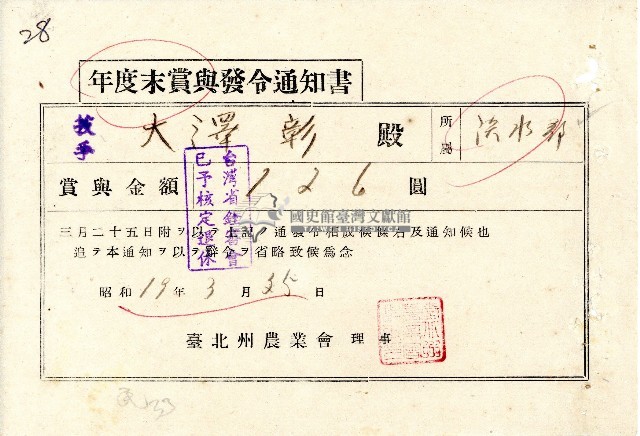 28
年度末賞與發令通知書
技手 大澤彰 殿 所屬 淡水郡
賞與金額 126 圓
台灣省銓敘會
已予核定退休
國史館臺灣文獻館
三月二十五日附ヲ以テ上記ノ通發令相成候條右及通知候也
追テ本通知ヲ以テ辭令ヲ省略致候爲念
昭和 19 年 3 月 25 日
臺北州農業會 理事